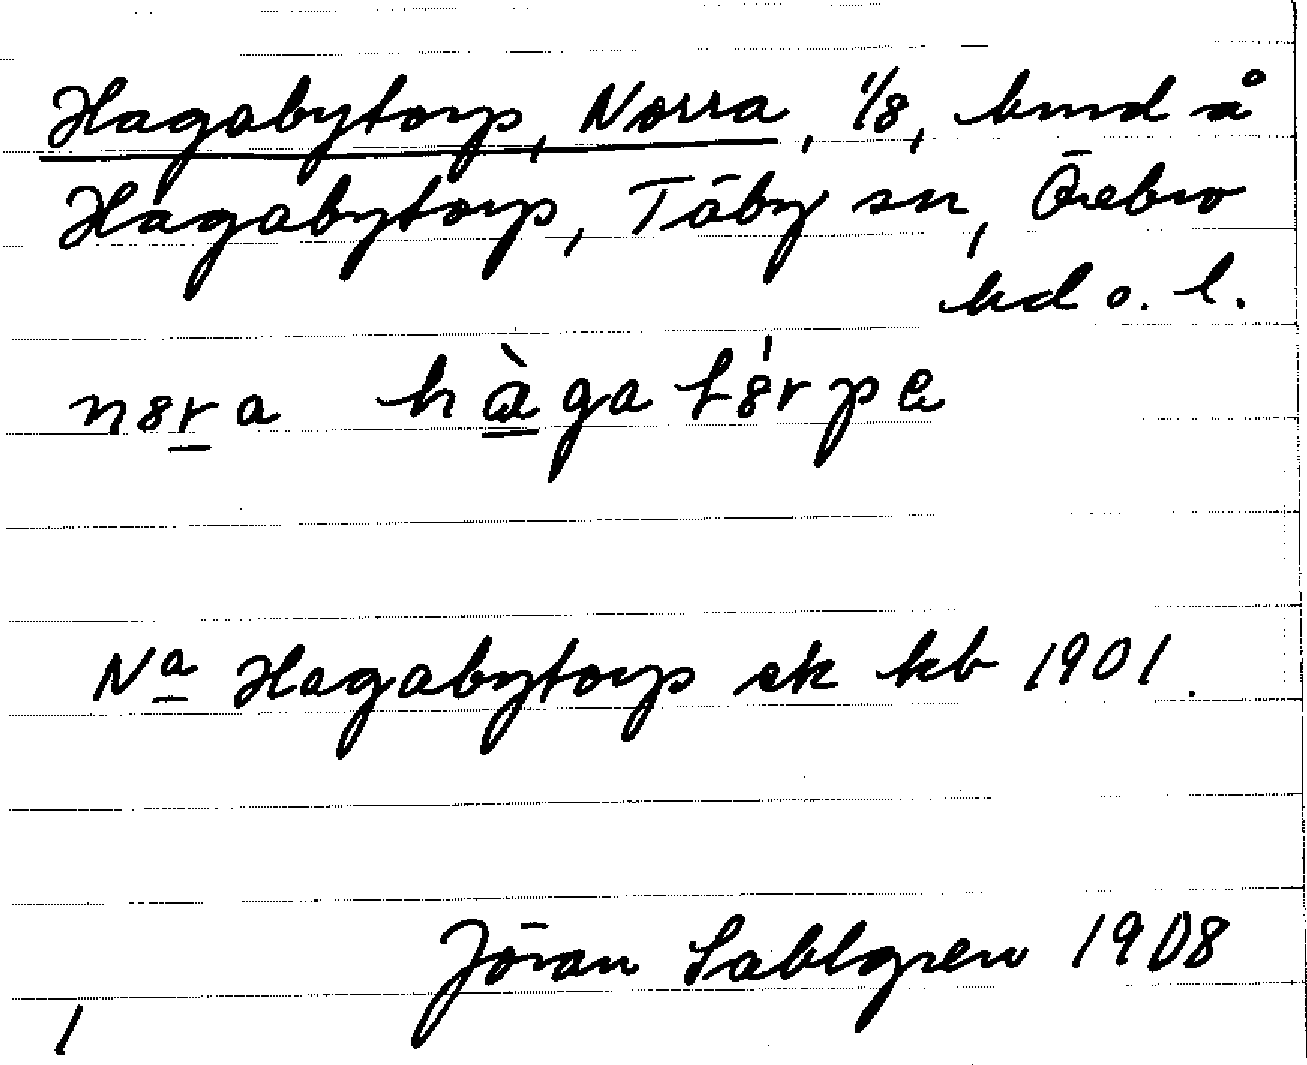 Hagabytorp, Norra, 1/8, hmd å
Hagabytorp, Täby sn, Örebro
hd o. l.
nɤra hàgatɤ́rpa
Na Hagabytorp ek kb 1901.
Jöran Sahlgren 1908
1